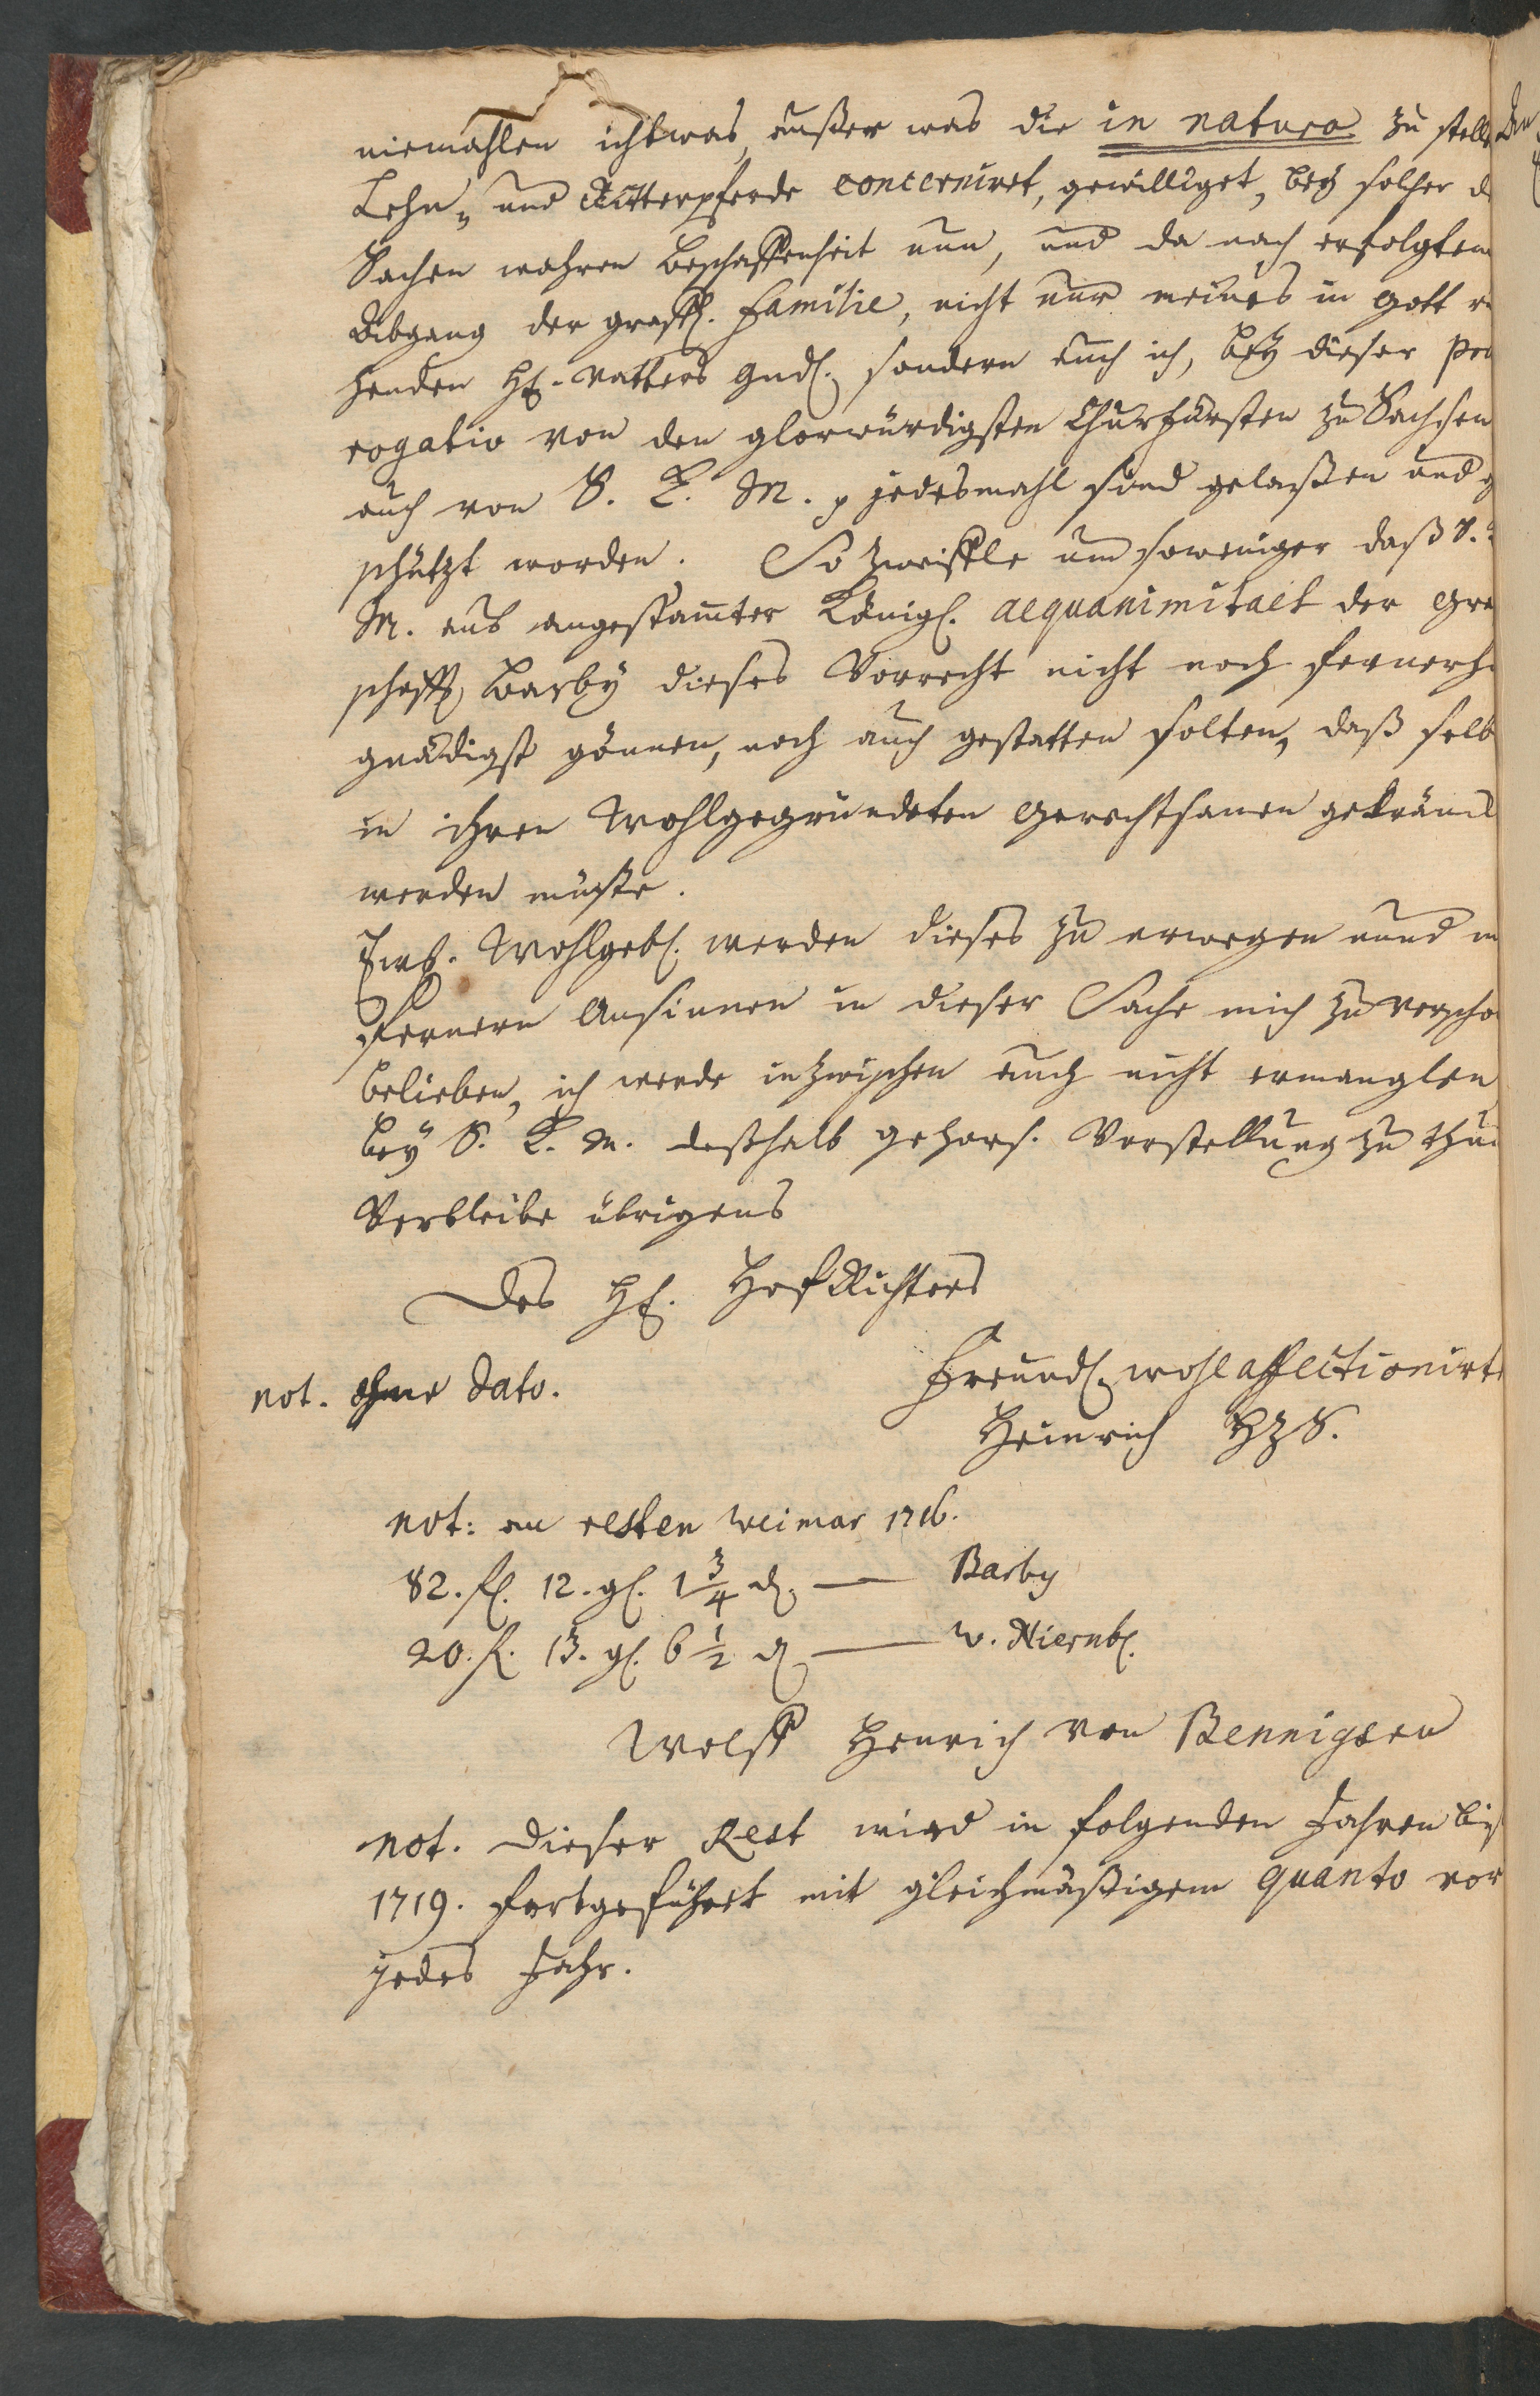 niemahlen ichtwas, außer was die in natura zu stelle
Lehn- und Ritterpferde concerniret, gewilliget, bey solcher d
Sachen wahren Beschaffenheit nun, und da nach erfolgtem
Abgang der gräffl. Familie, nicht nur meines in Gott ru
henden H. Vatters Gnd. sondern auch ich, bey dieser Prae
rogativ von den glorwürdigsten Churfürsten zu Sachsen
auch von S. K. M. p jedesmahl sind gelaßen und g
schützt worden. So zweiffle um soweniger daß S.
M. aus angestamter Königl. aequanimitaet der Gra
schafft Barby dieses Vorrecht nicht noch fernerhi
gnädigst gönnen, noch auch gestatten solten, daß selb
in ihren Wohlgegründeten Gerechtsamen gekränck
werden müste.
Ewh. Wohlgeb. werden dieses zu erwegen unnd m
fernern Ansinnen in dieser Sache mich zu verscho
belieben, ich werde inzwischen auch nicht ermanglen
bey S. K. M. deßhalb gehors. Vorstellung zu thun
Verbleibe übrigens
Des H. HofRichters
Freundl. wohlaffectionirte
not. ohne dato.
Heinrich HZS.
not: an resten Weimar 1716.
82. fl. 12. gl. 1 3/4 d. — Barby
20. fl. 13. gl. 6 1/2 d — W. Niernb.
Wolff Henrich von Bennigsen
not. Dieser Rest wird in folgenden Jahren biß
1719. fortgeführet mit gleichmäßigem quanto vor
jedes Jahr.